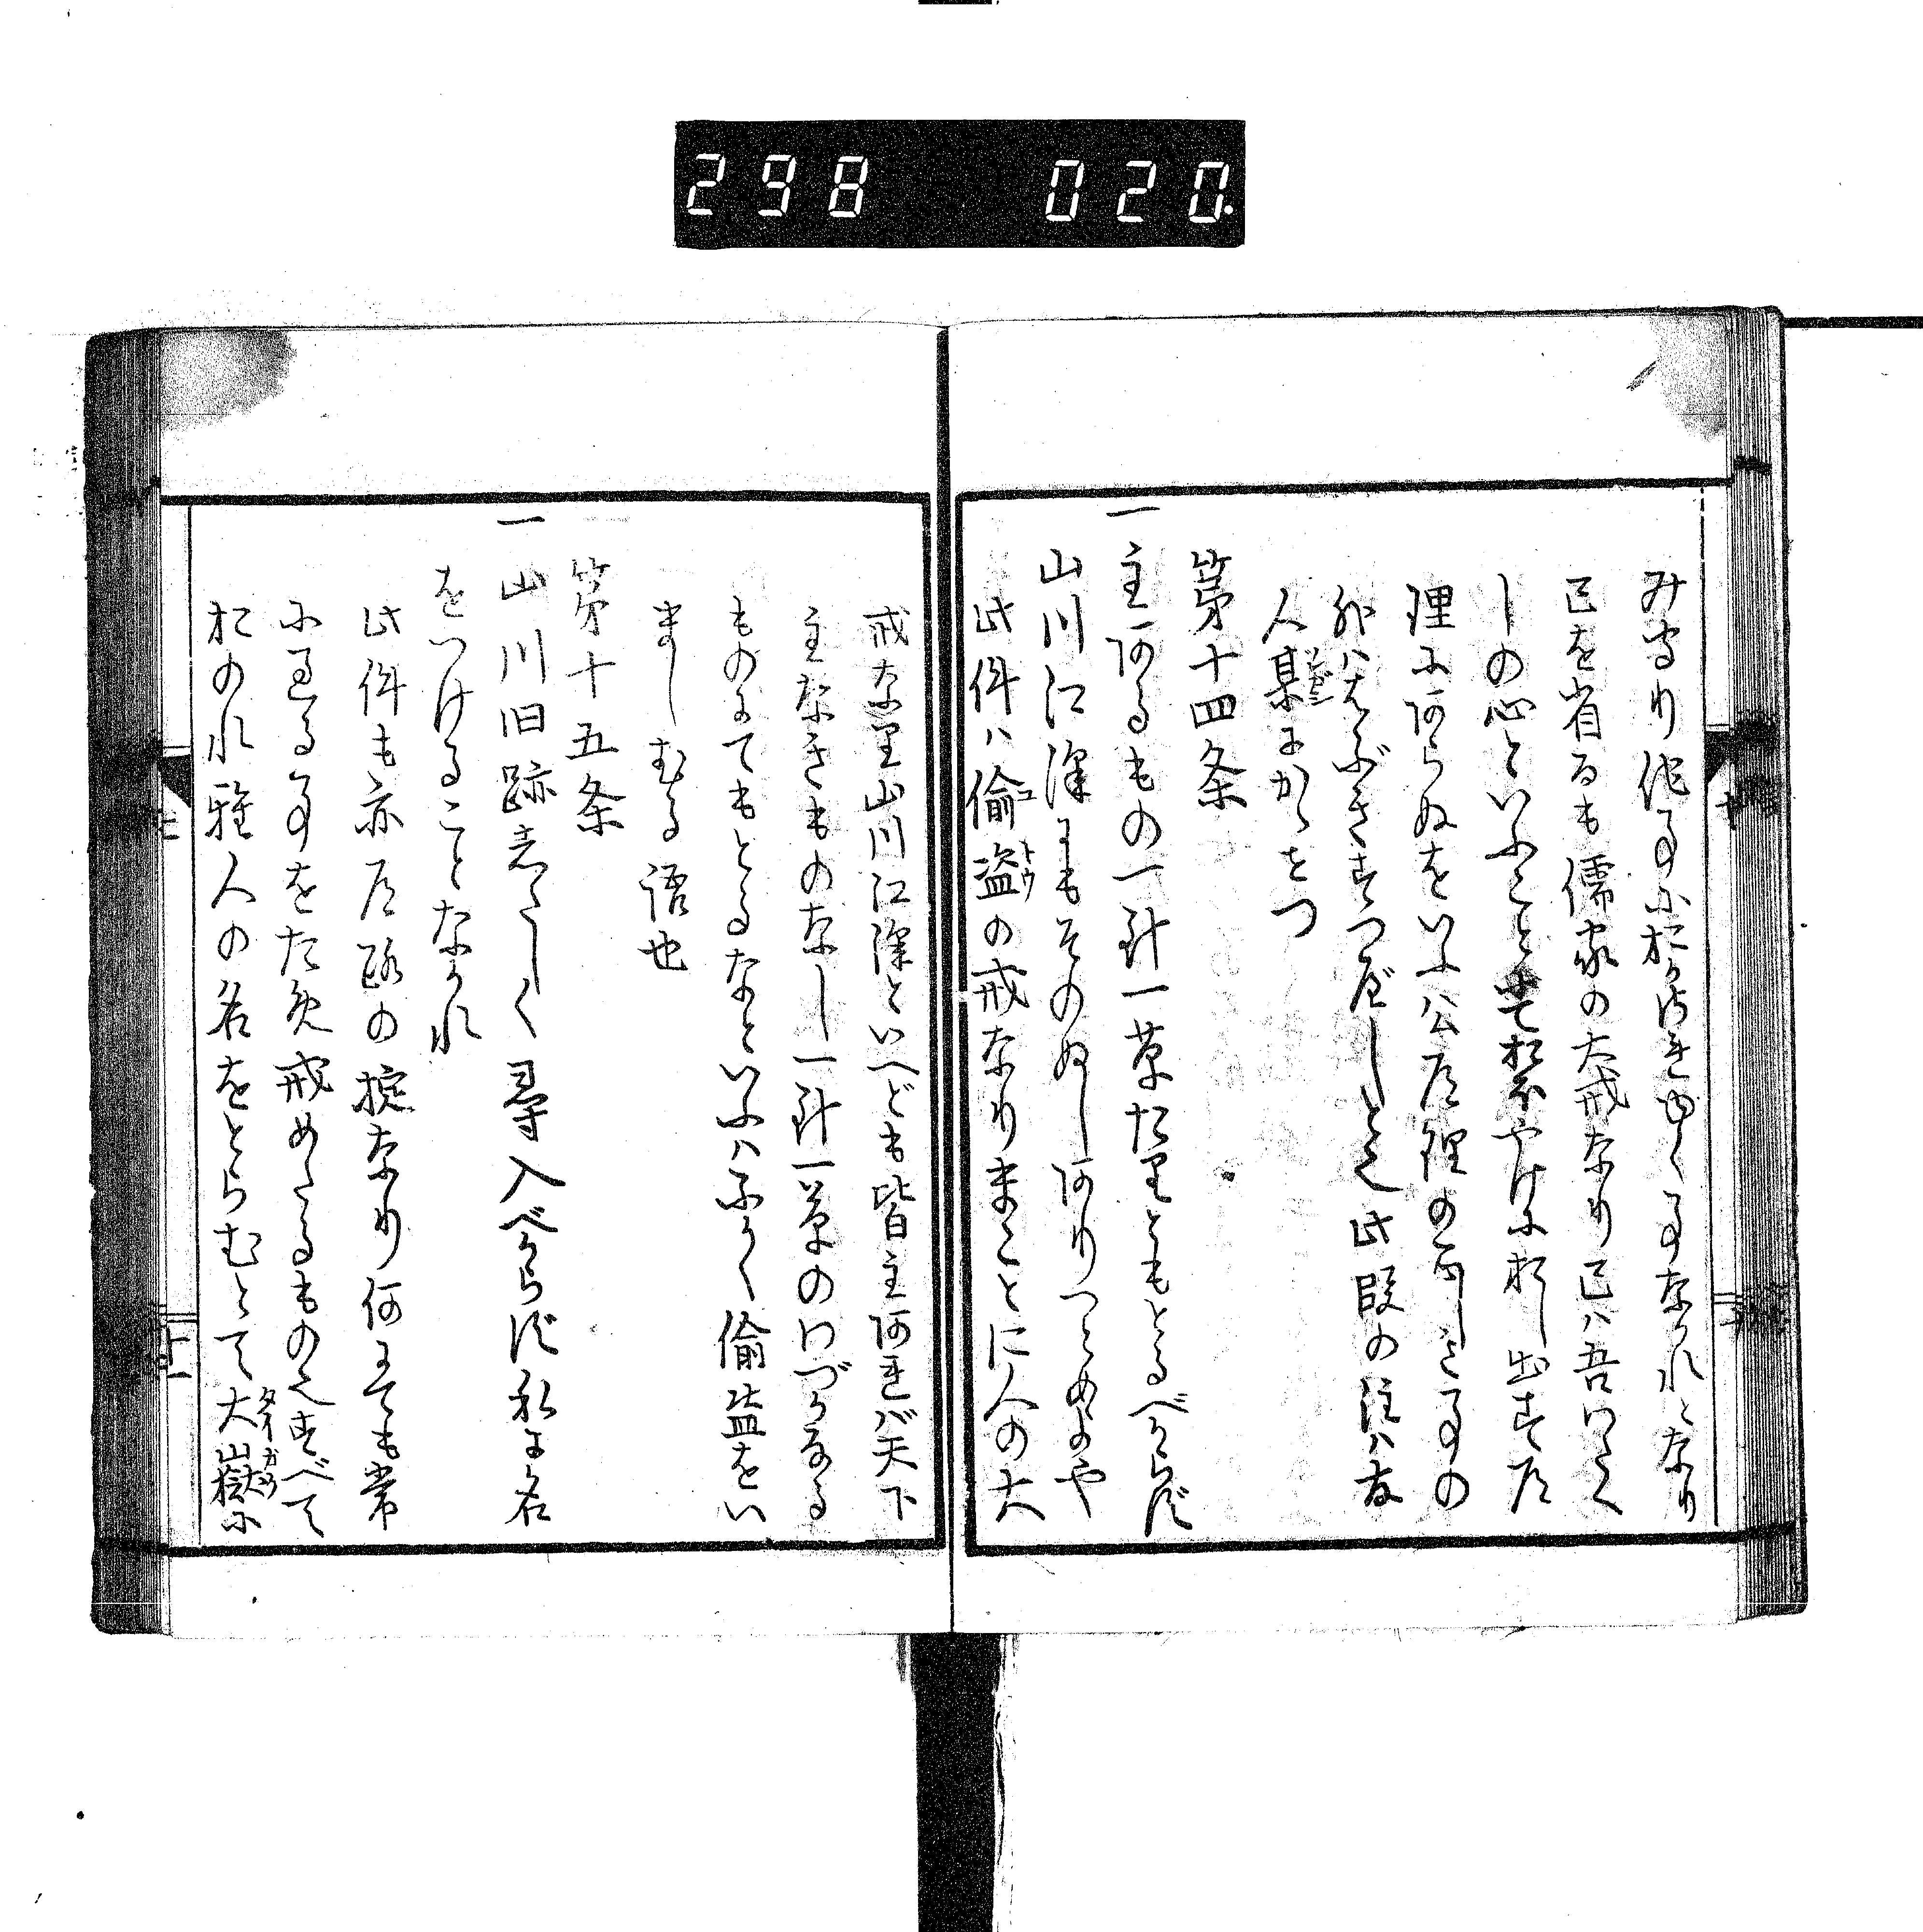 298 020
みなり他事に於かはきゆく事なかれとなり
己を省るも儒家の大戒なり己は吾わたく
しの心といふことにておほやけに押し出す道
理にあらぬをいふ公道理の正しき事の
外ははぶきすつべしと也此段の注は古
人某にかゝをつ
第十四条
一主あるもの一針一草たりともとるべからず
山川江澤にもそのぬしありつとめよや
此件ハ偸盗の戒なりまことに人の大
ユ トウ
戒なり山川江澤といへども皆主あれバ天下
主なきものなし一針一草のわづかなる
ものにてもとるなといふハふかく偸盗をい
ましむる語也
第十五条
一山川旧跡したしく尋入べからず私に名
をつけることなかれ
此件も亦道路の掟なり何にても常
に異る事をため戒めたるものなりすべて
おのれ雅人の名をとらむとて大嶽に
タイガク